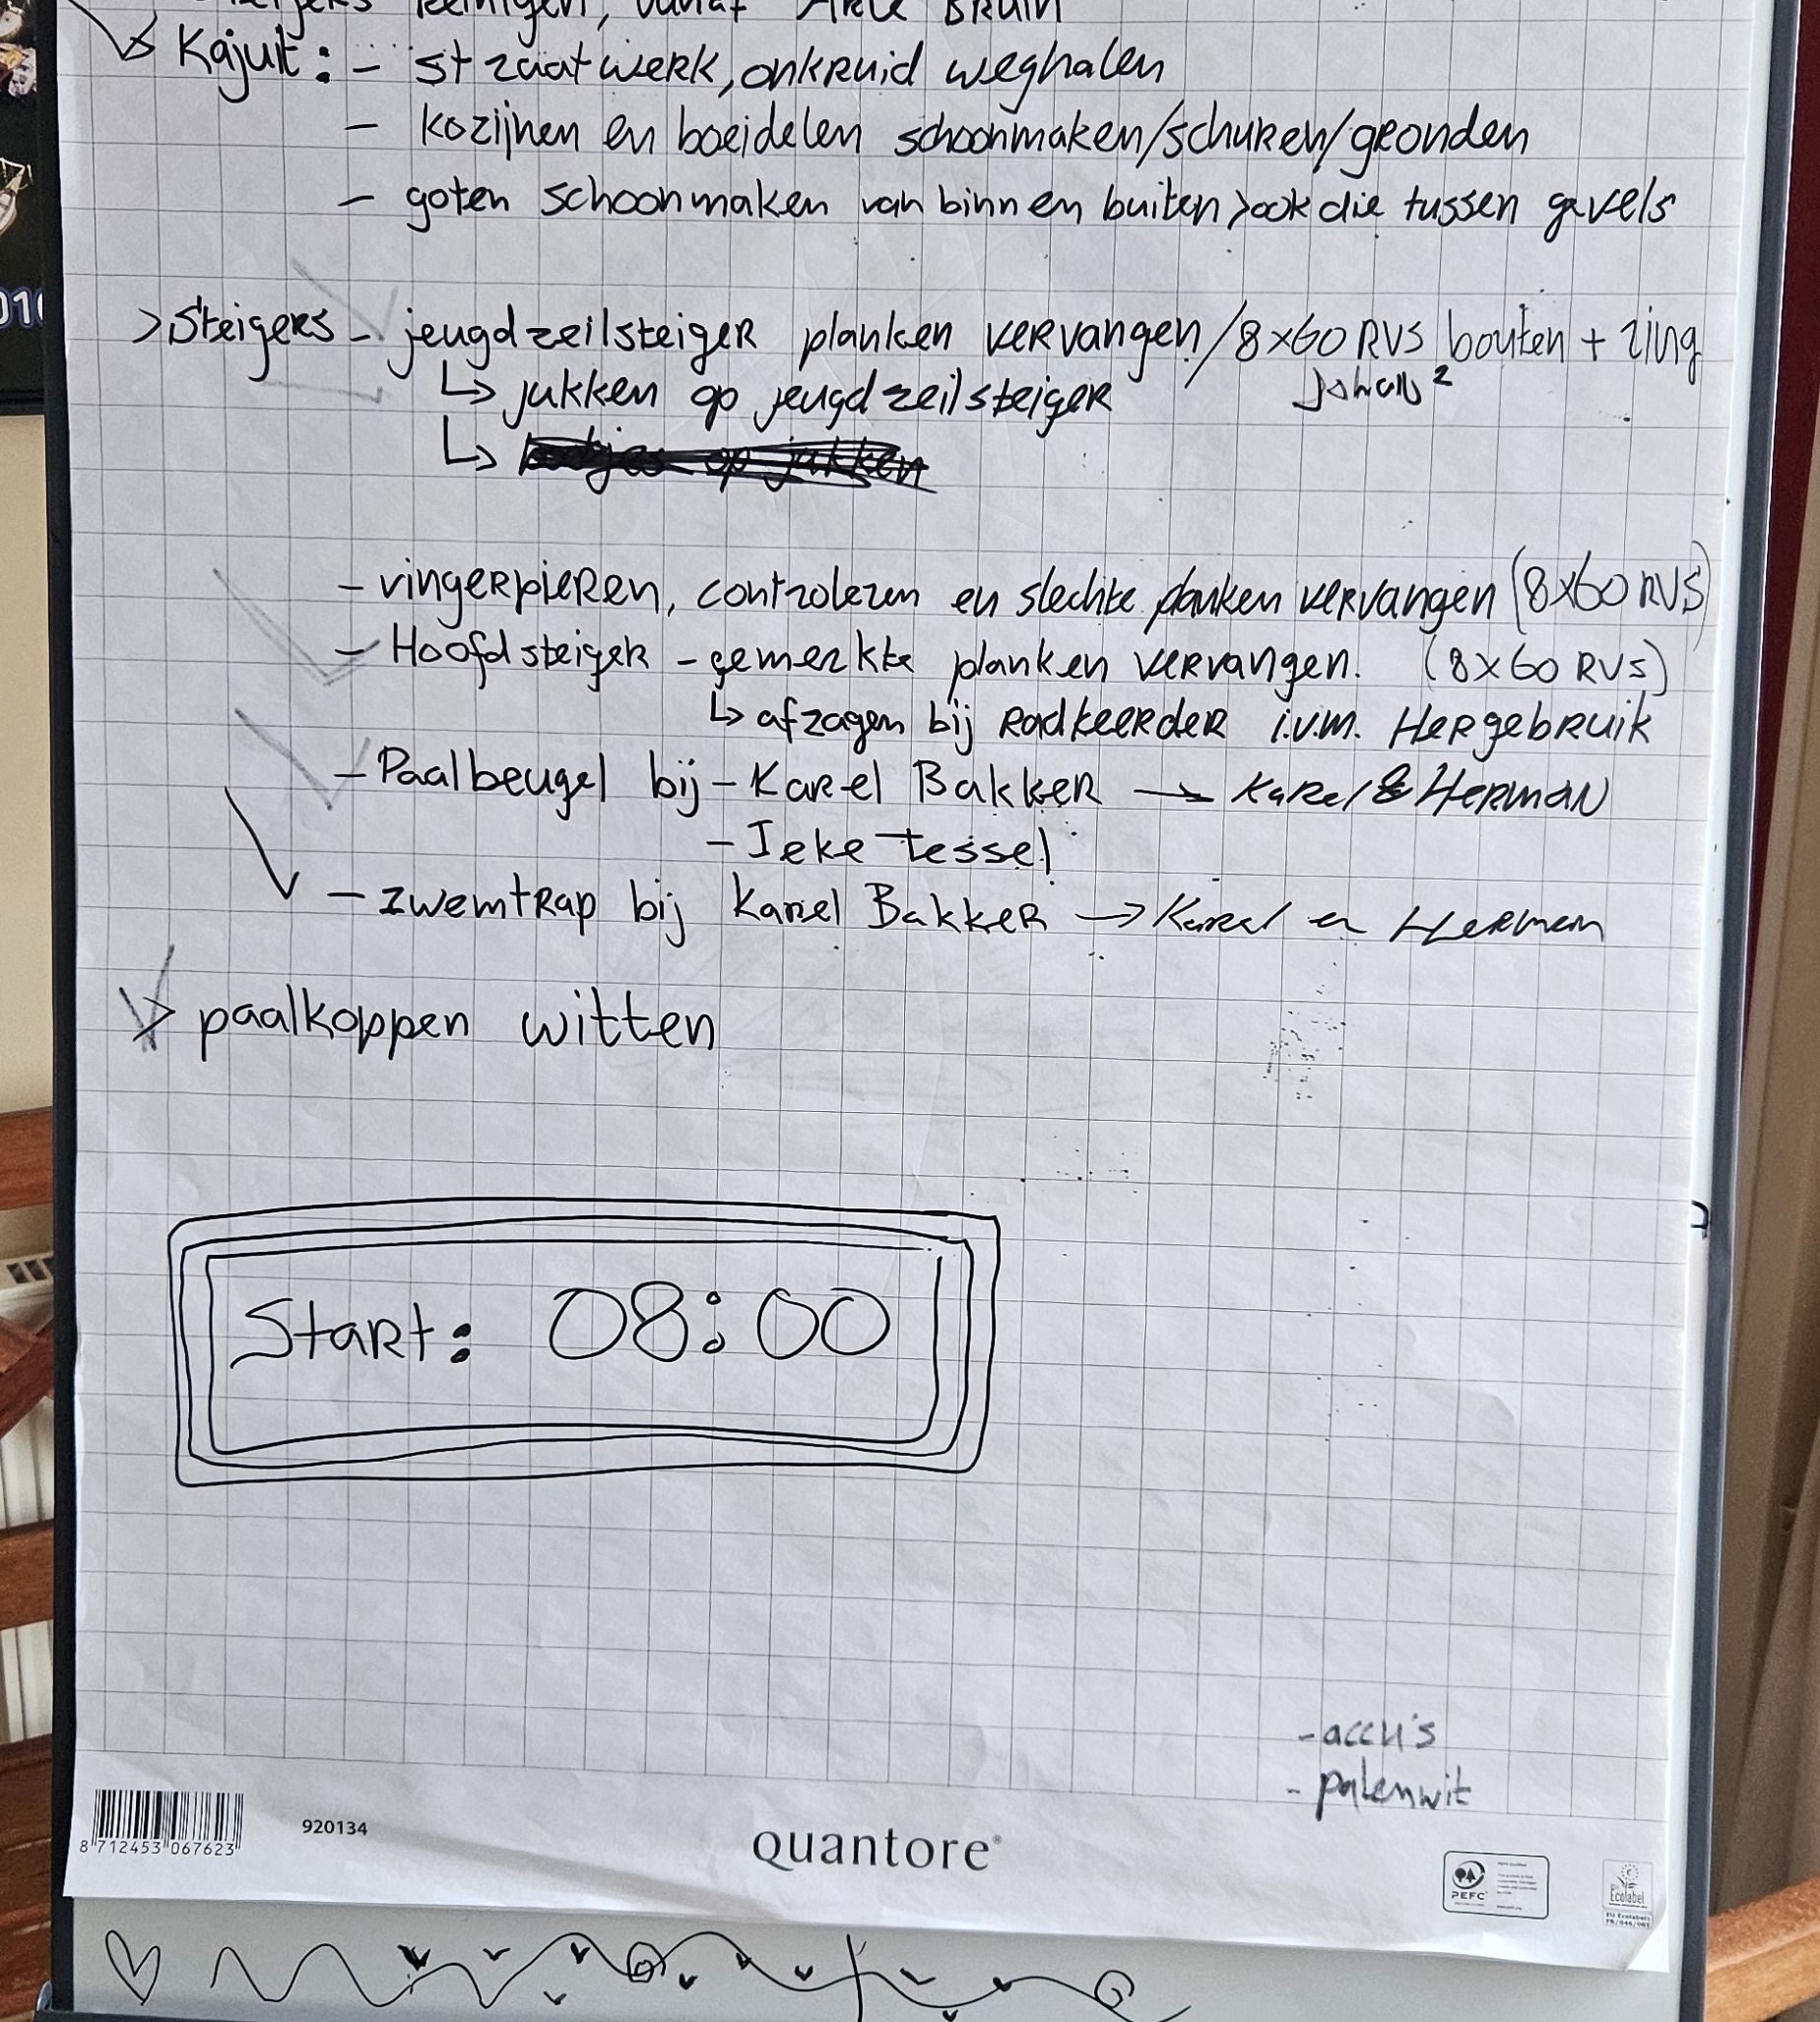 reinigen, vanaf Arie Bruin
Kajuit: - straatwerk, onkruid weghalen
- kozijnen en boeidelen schoonmaken/schuren/gronden
- goten schoonmaken van binn en buiten > ook die tussen gevels
> Steigers - jeugdzeilsteiger planken vervangen / 8x60 RVS bouten + ring
↳ jukken op jeugdzeilsteiger
Johan²
↳ bootjes op jukken
- vingerpieren, controleren en slechte planken vervangen (8x60 RVS)
- Hoofdsteiger - gemerkte planken vervangen. (8x60 RVS)
↳ afzagen bij Radkeerder i.v.m. Hergebruik
- Paalbeugel bij - Karel Bakker → Karel & Herman
- Ieke Tessel
- zwemtrap bij Karel Bakker → Karel en Herman
> paalkoppen witten
Start: 08:00
- accu's
- palenwit
8 712453 067623
920134
quantore
PEFC
Ecolabel